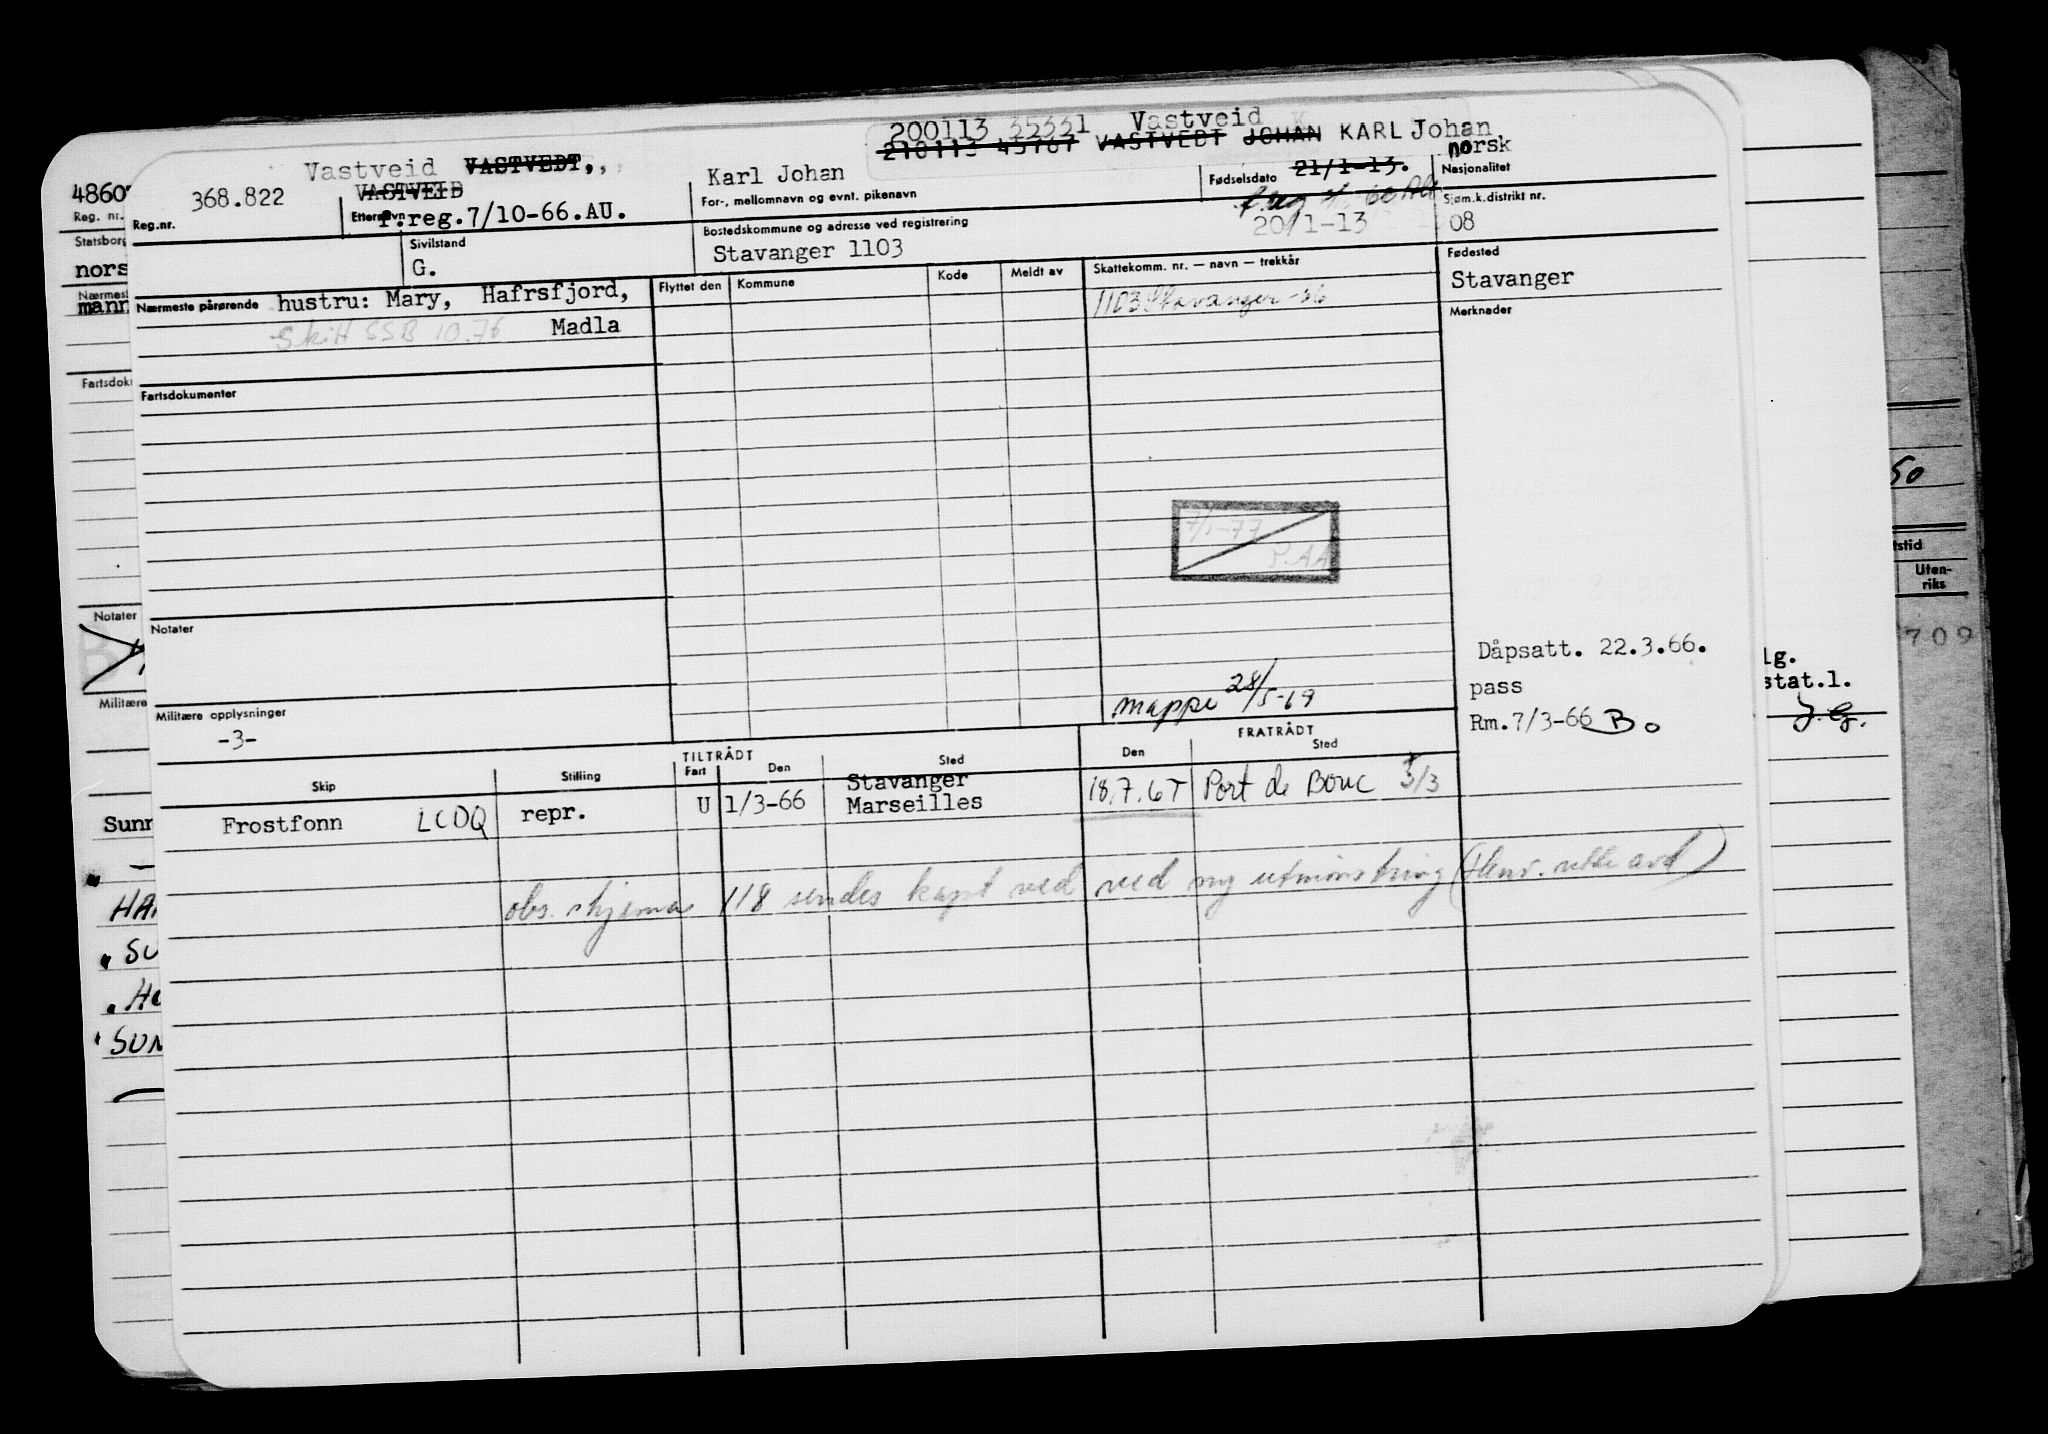 200113 35331 Vastveid
210113 45767 VASTVEDT JOHAN KARL Johan
Vastveid VASTVEDT,
VASTVEID
Karl Johan
21/1-13.
norsk
368.822
Reg.nr.
Etternavn
f.reg.7/10-66.AU.
For-, mellomnavn og evnt. pikenavn
Fødselsdato
Nasjonalitet
20/1-13
Sjøm.k.distrikt nr.
08
Sivilstand
G.
Bostedskommune og adresse ved registrering
Stavanger 1103
Fødested
Stavanger
Nærmeste pårørende hustru: Mary, Hafrsfjord,
Madla
Skitt SSB 10.76
Flyttet den
Kommune
Kode
Meldt av
Skattekomm. nr. — navn — trekkår
1103 Stavanger -66
Merknader
Fartsdokumenter
7/1-77
P.AA
Notater
Dåpsatt. 22.3.66.
pass
Rm.7/3-66 B.
mappe 28/5-69
Militære opplysninger
-3-
TILTRÅDT
FRATRÅDT
Skip
Stilling
Fart
Den
Sted
Den
Sted
Frostfonn LCDQ repr. U 1/3-66 Stavanger
Marseilles
18.7.67 Port de Bouc 3/3
obs. skjema 118 sendes kapt ved ved ny utmønstring (Henv. rette avd)
4860
Reg. nr.
Statsborg
nors
Nærmest
mann
Fartsdoku
Notater
Militære
Sunn
HA
" SU
" HO
" SUN
50
tstid
Uten-
riks
709
lg.
stat.l.
J.G.